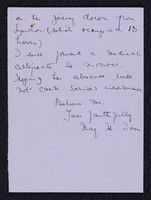 on the journey down from
London (which occupies 13
hours)
I will forward a medical
certificate to
Hoping the absence will
not cause serious inconvenience
Believe me
Yours faithfully
May H.